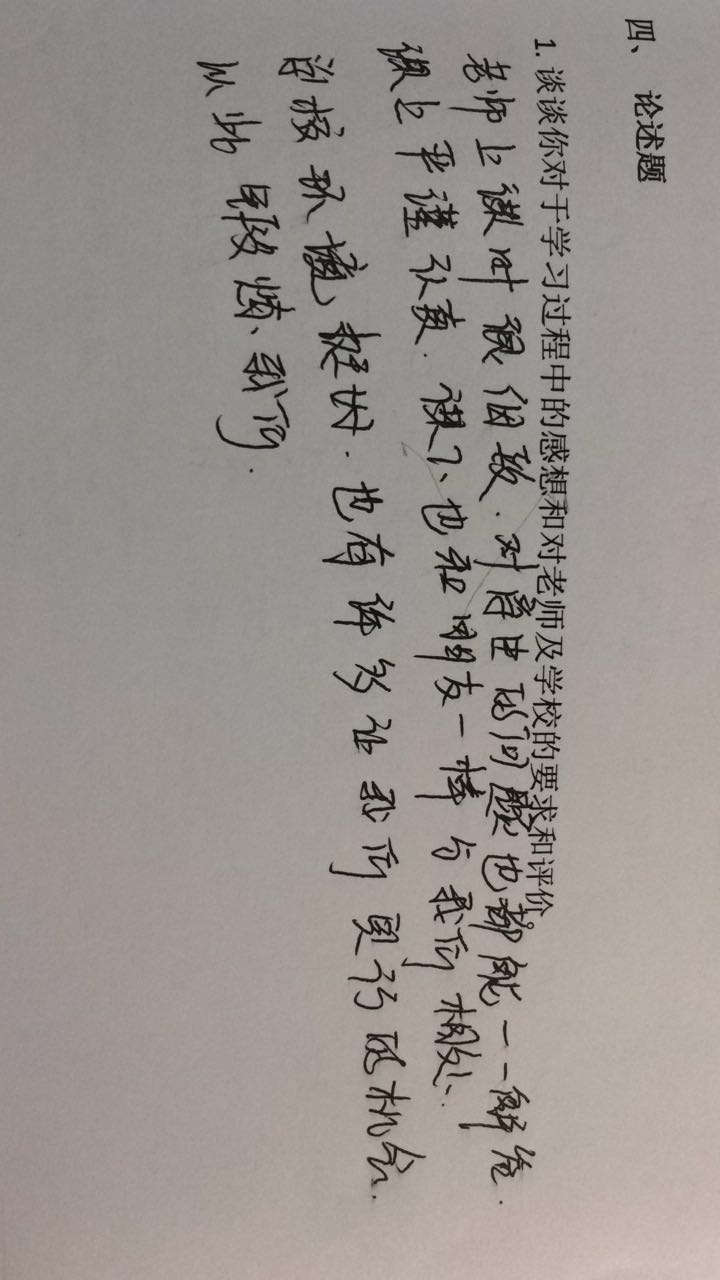 四、论述题
1. 谈谈你对于学习过程中的感想和对老师及学校的要求和评价
老师上课时很细致.对提出的问题也都能一一解答.
课上严谨认真.课下、也和朋友一样与我们相处.
学校环境挺好.也有许多让我们更多的机会.
以此锻炼、我们.